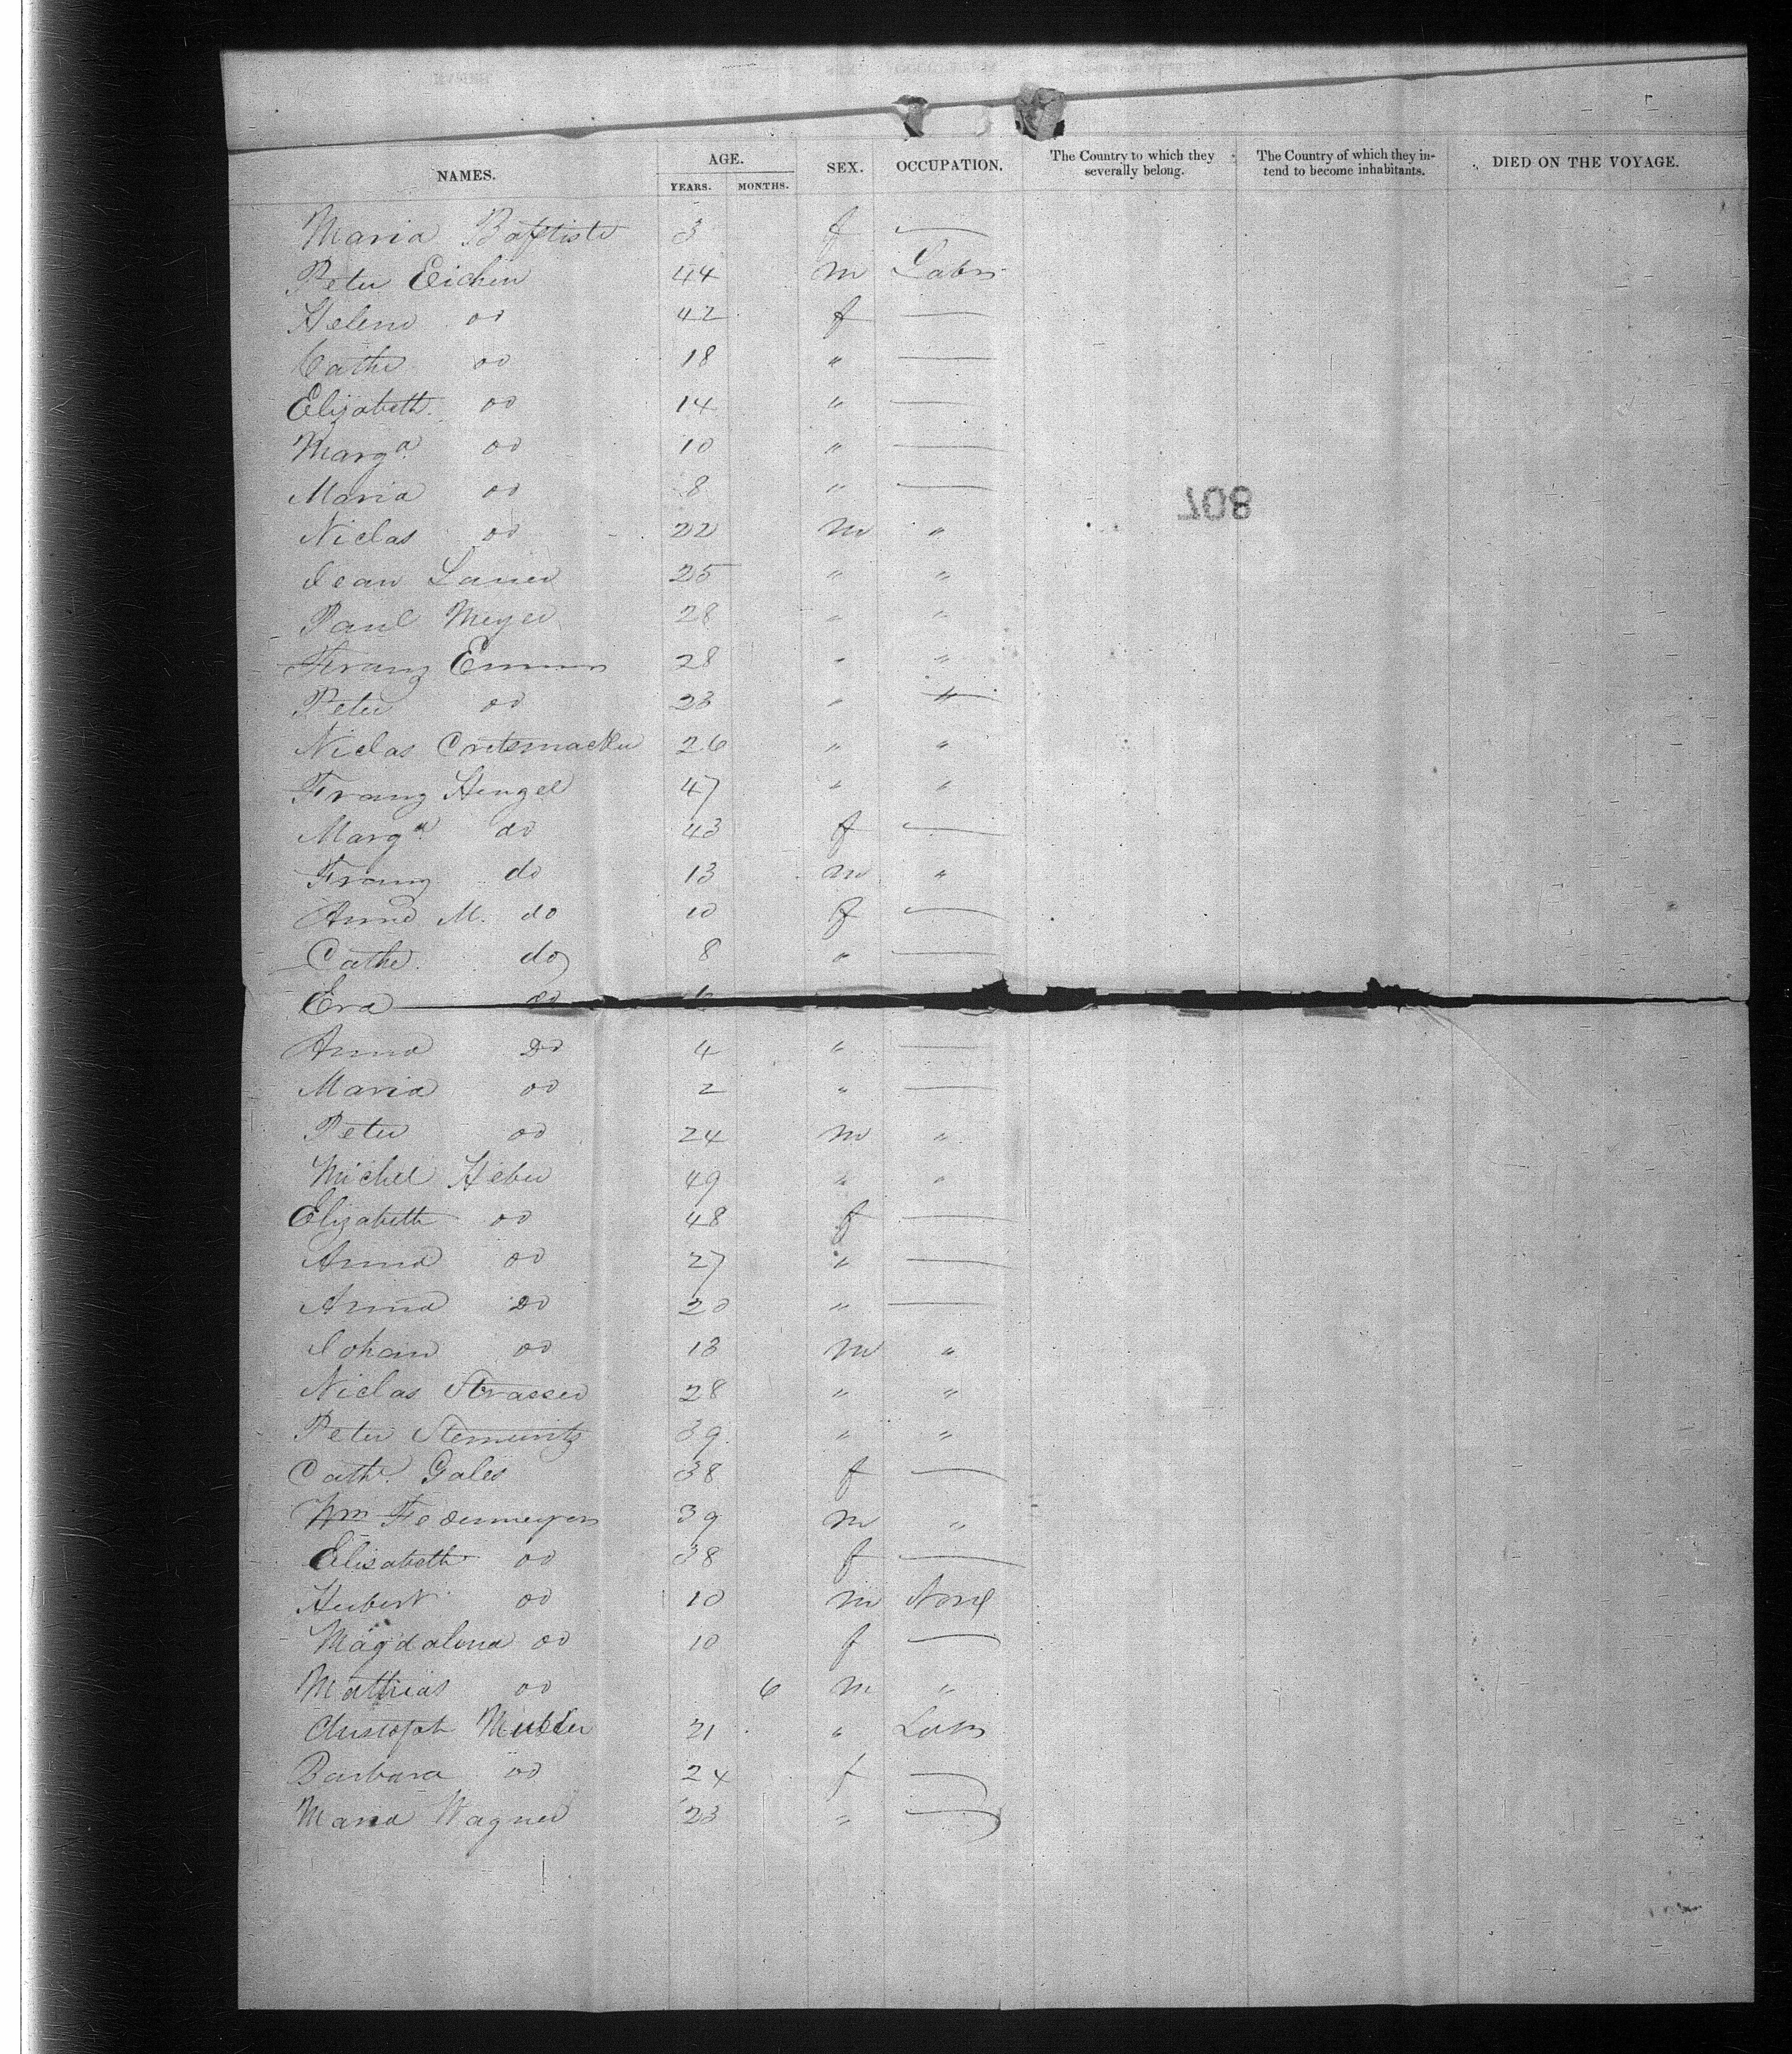 NAMES. AGE. SEX. OCCUPATION. The Country to which they severally belong. The Country of which they intend to become inhabitants. DIED ON THE VOYAGE.
YEARS. MONTHS.
Maria Baptiste 3 f —
Peter Eichen 44 m Labr
Helena do 42 f —
Cathe do 18 " —
Elizabeth do 14 " —
Marga do 10 " —
Maria do 8 " —
807
Niclas do 22 m "
Jean Lauer 25 " "
Paul Meyer 28 " "
Franz 28 " "
Peter do 23 " "
Niclas 26 " "
Franz Hengel 47 " "
Marga do 43 f —
Franz do 13 m "
Anna M. do 10 f —
Cathe. do 8 " —
Eva do
Anna Do 4 " —
Maria do 2 " —
Peter do 24 m "
Michel Heber 49 " "
Elizabeth do 48 f —
Anna do 27 " —
Anna Do 20 " —
Johann do 13 m "
Niclas Strasser 28 " "
Peter 39 " "
Cathe. Gales 38 f —
Wm Federmeyer 39 m "
Elisabeth do 38 f —
Hubert do 10 m None
Magdalena do 10 f —
Mathias do 6 m "
Christoph Muller 21 " Labr
Barbara do 24 f —
Maria Wagner 23 " —